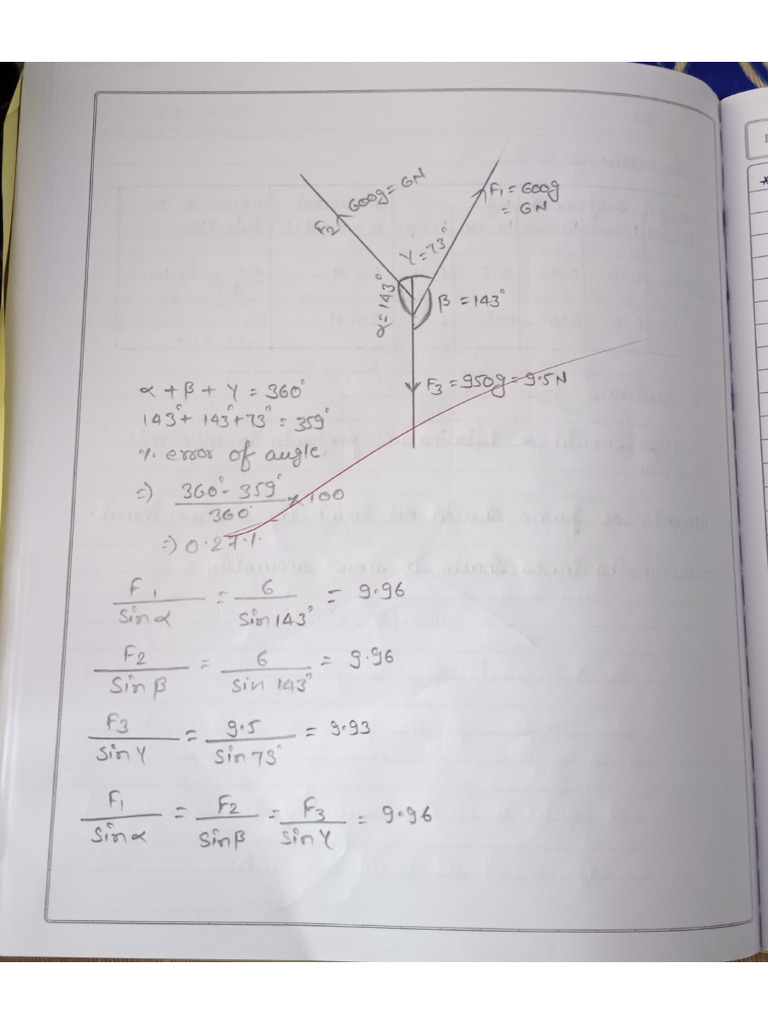 F2 600g = 6N
F1 = 600g
= 6N
γ = 73°
α = 143°
β = 143°
F3 = 950g = 9.5N
α + β + γ = 360°
143° + 143° + 73° = 359°
% error of angle
=) 360° - 359° / 360° × 100
=) 0.27%
F1 / sin α = 6 / sin 143° = 9.96
F2 / sin β = 6 / sin 143° = 9.96
F3 / sin γ = 9.5 / sin 73° = 9.93
F1 / sin α = F2 / sin β = F3 / sin γ = 9.96